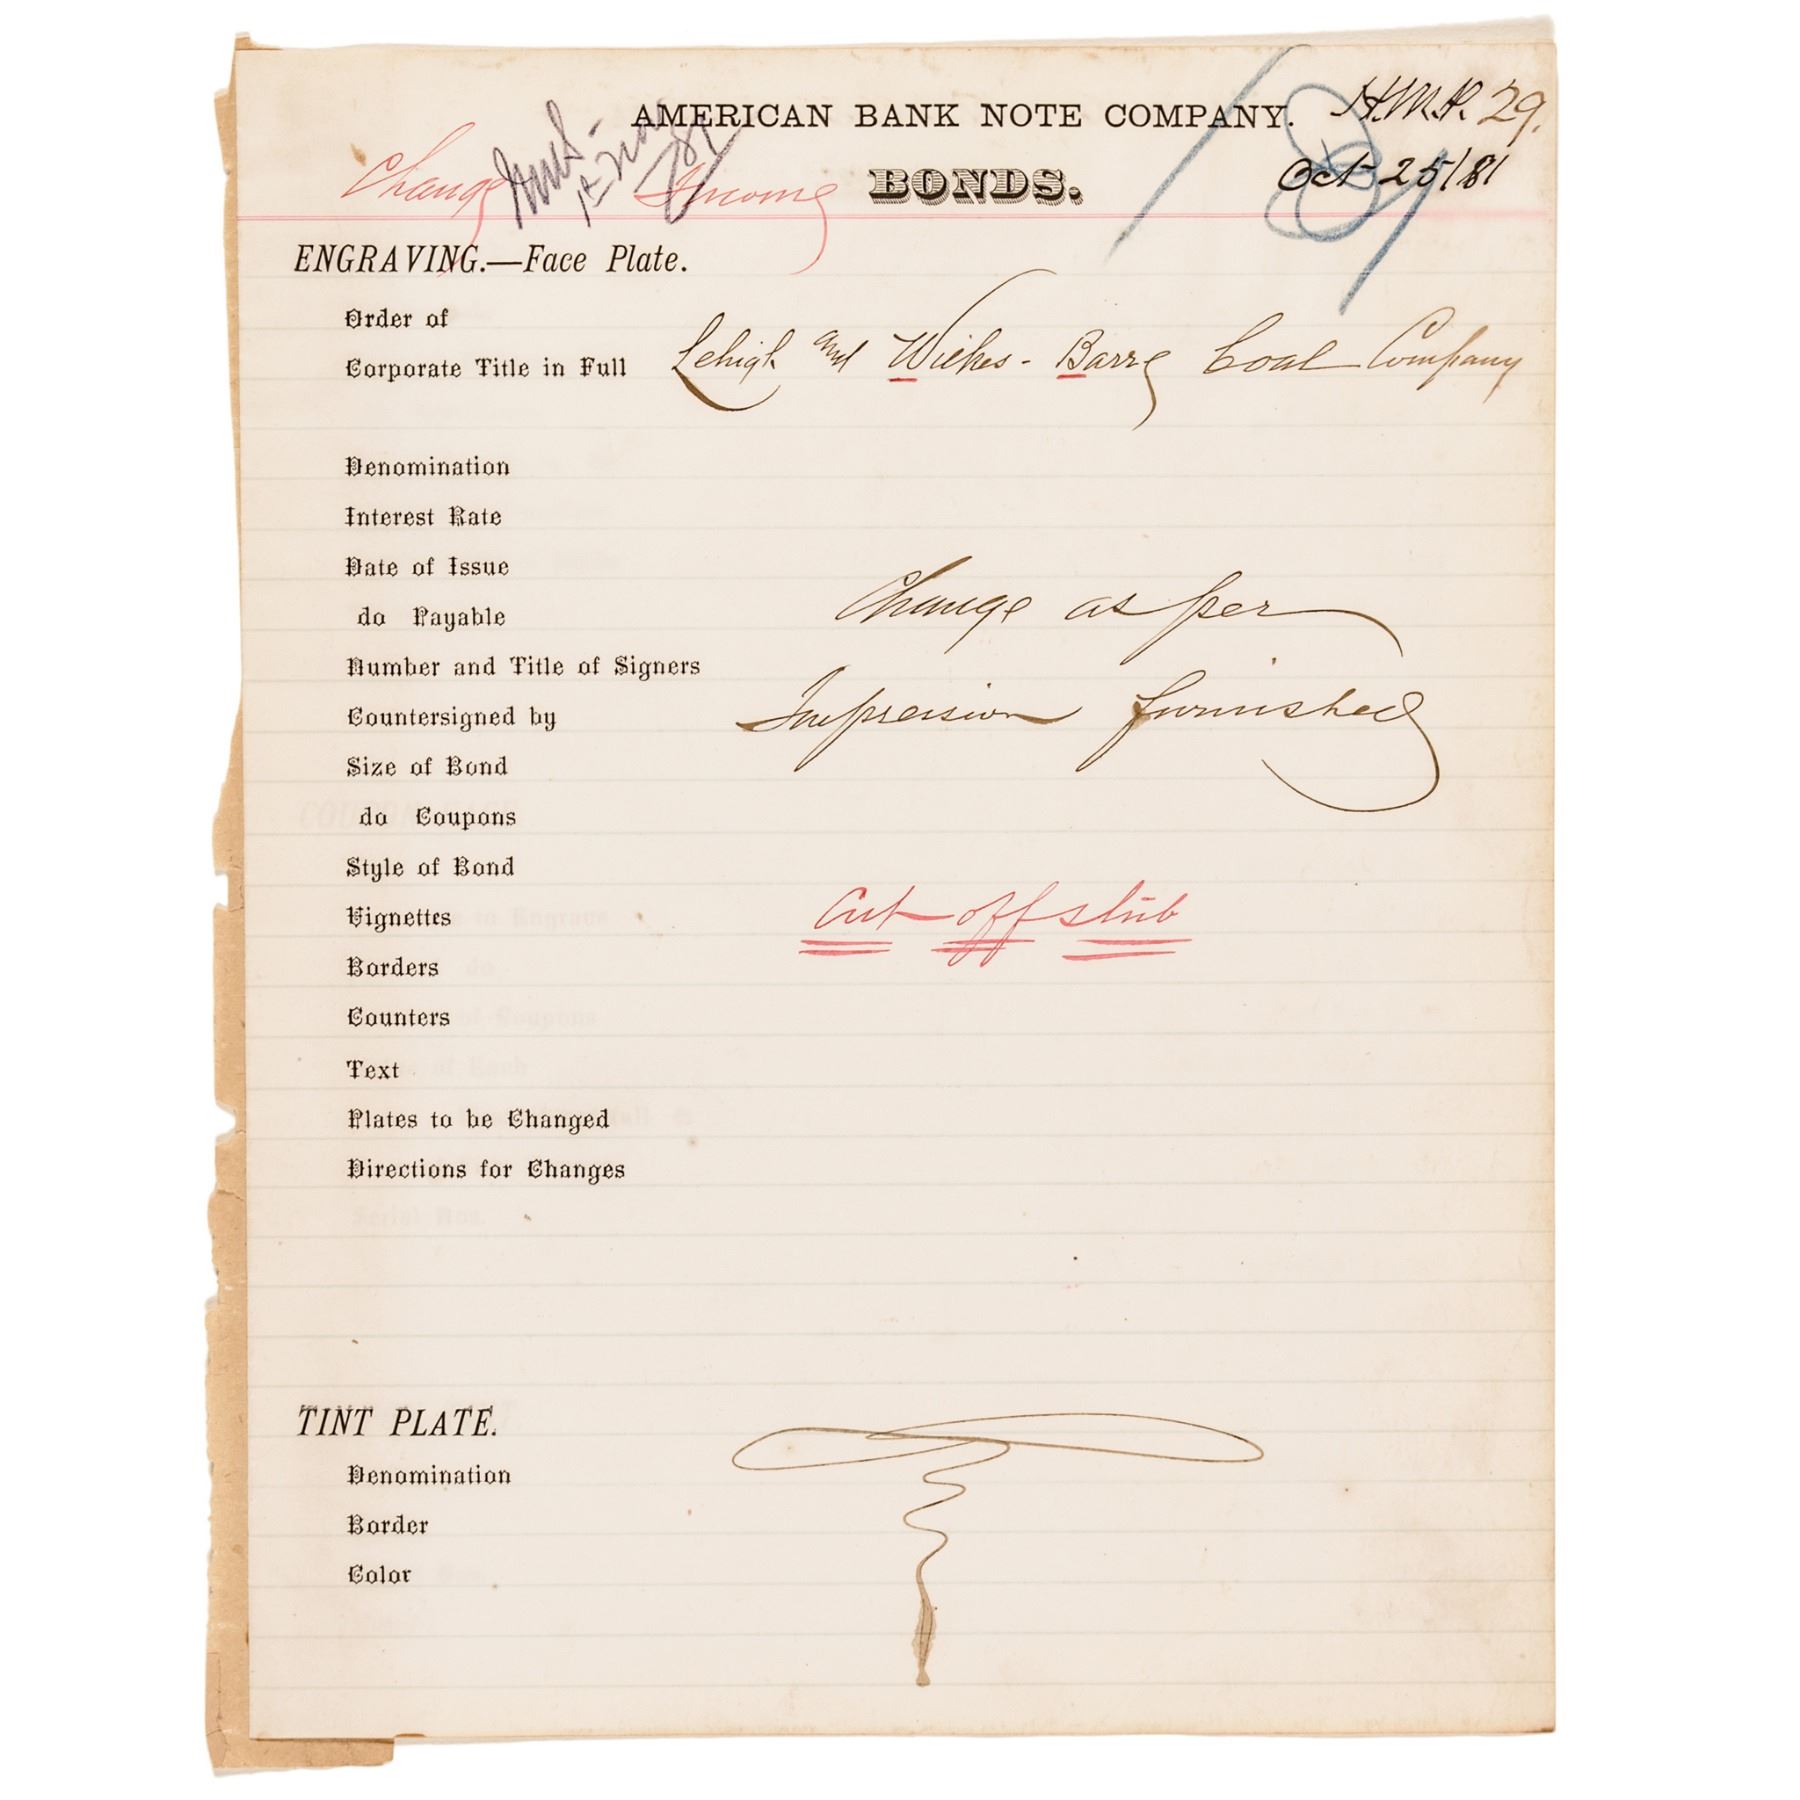 AMERICAN BANK NOTE COMPANY. H.M.R. 29.
Change Income BONDS. Oct 25/81
ENGRAVING.—Face Plate.
Order of
Corporate Title in Full Lehigh and Wilkes-Barre Coal Company
Denomination
Interest Rate
Date of Issue
do Payable Change as per
Number and Title of Signers
Countersigned by Impression furnished
Size of Bond
do Coupons
Style of Bond
Vignettes Cut off stub
Borders
Counters
Text
Plates to be Changed
Directions for Changes
TINT PLATE.
Denomination
Border
Color